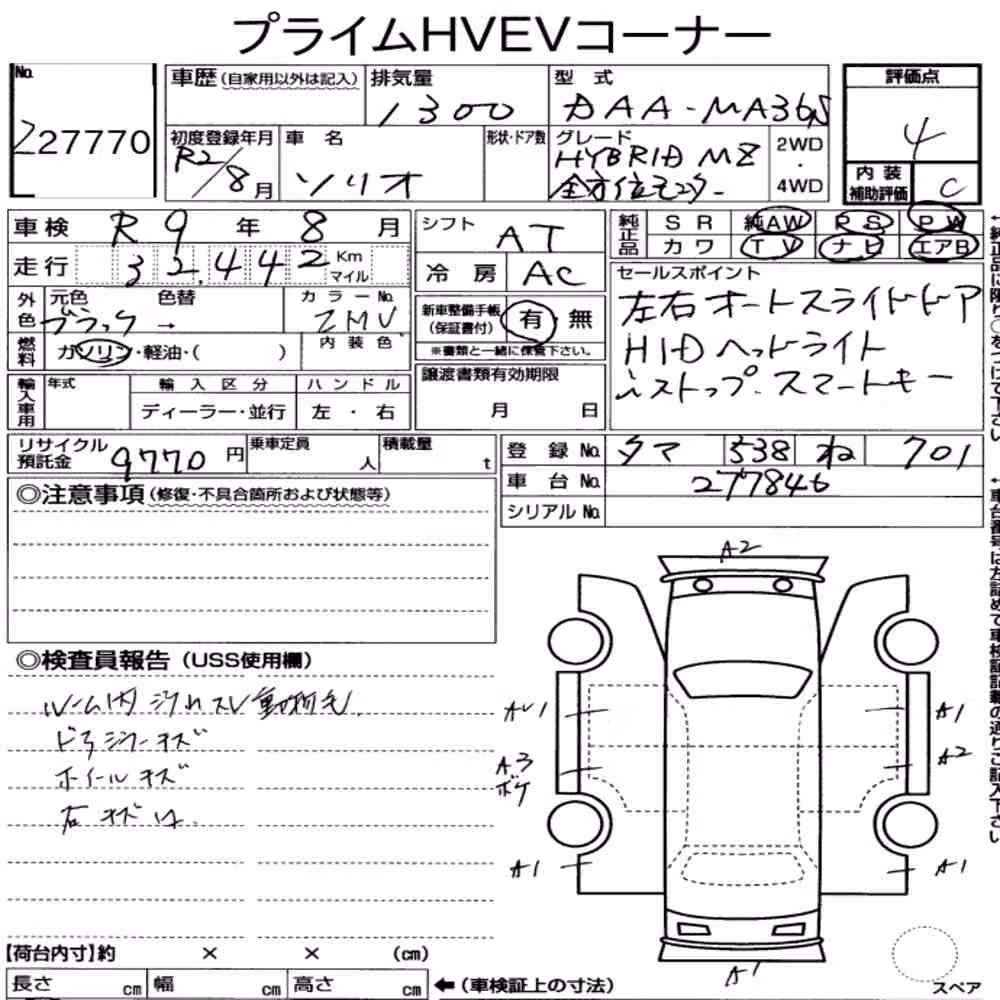 プライムHVEVコーナー
No. 227770
車歴(自家用以外は記入)
排気量 1300
型式 DAA-MA36S
評価点 4
初度登録年月 R2/8月
車名 ソリオ
形状・ドア数
グレード HYBRID MZ
全方位モニター
2WD・4WD
内装補助評価 C
車検 R9年8月
シフト AT
純正品 SR 純AW PS PW
カワ TV ナビ エアB
走行 32,442 Km マイル
冷房 AC
セールスポイント
左右オートスライドドア
HIDヘッドライト
iストップ.スマートキー
外色 元色 色替 カラーNo.
ブラック → ZMV
新車整備手帳(保証書付) 有 無
※書類と一緒に保管下さい。
燃料 ガソリン・軽油・( ) 内装色
輸入車用 年式 輸入区分 ハンドル
ディーラー・並行 左・右
譲渡書類有効期限
月 日
リサイクル預託金 9770円
乗車定員 人
積載量 t
登録No. タマ 538 ね 701
車台No. 277846
シリアルNo.
◎注意事項(修復・不具合箇所および状態等)
◎検査員報告(USS使用欄)
ルーム内 汚れスレ動物毛.
ドアミラーキズ
ホイールキズ
A2
A1
A2
A3
ボケ
A1
A1
A1
スペア
【荷台内寸】約 × × (cm)
長さ cm 幅 cm 高さ cm ←(車検証上の寸法)